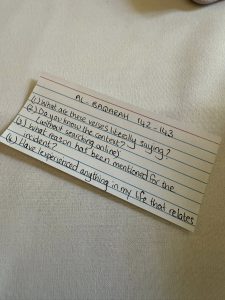 AL. BAQARAH 142-143
(1) What are these verses literally saying?
(2) Do you know the context?
(without searching online)
(3) What reason has been mentioned for the
incident?
(4) Have I experienced anything in my life that relates